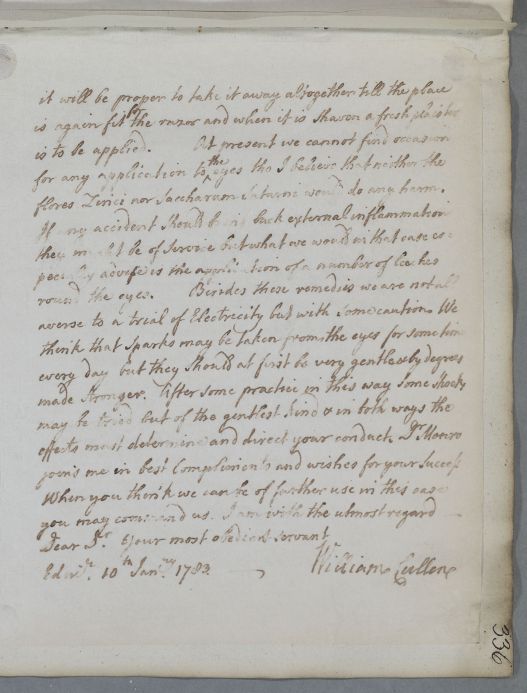 it will be proper to take it away altogether till the place
is again fit for the razor and when it is shaven a fresh plaister
is to be applied. At present we cannot find occasion
for any application to the eyes tho I believe that neither the
flores Zinci nor Saccharum Saturni would do any harm.
If any accident should bring back external inflammation
they might be of service but what we would in that case es=
pecially advise is the application of a number of leeches
round the eyes. Besides these remedies we are not at all
averse to a trial of Electricity but with some caution. We
think that Sparks may be taken from the eyes for some time
every day but they should at first be very gentle & by degrees
made stronger. After some practice in this way some shocks
may be tried but of the gentlest kind & in both ways the
effects must determine and direct your conduct. Dr Monro
joins me in best Compliments and wishes for your success
When you think we can be of further use in this case
you may command us. I am with the utmost regard
Dear Dr. your most obedient servant
Edinr. 10th Janry 1783. William Cullen
336